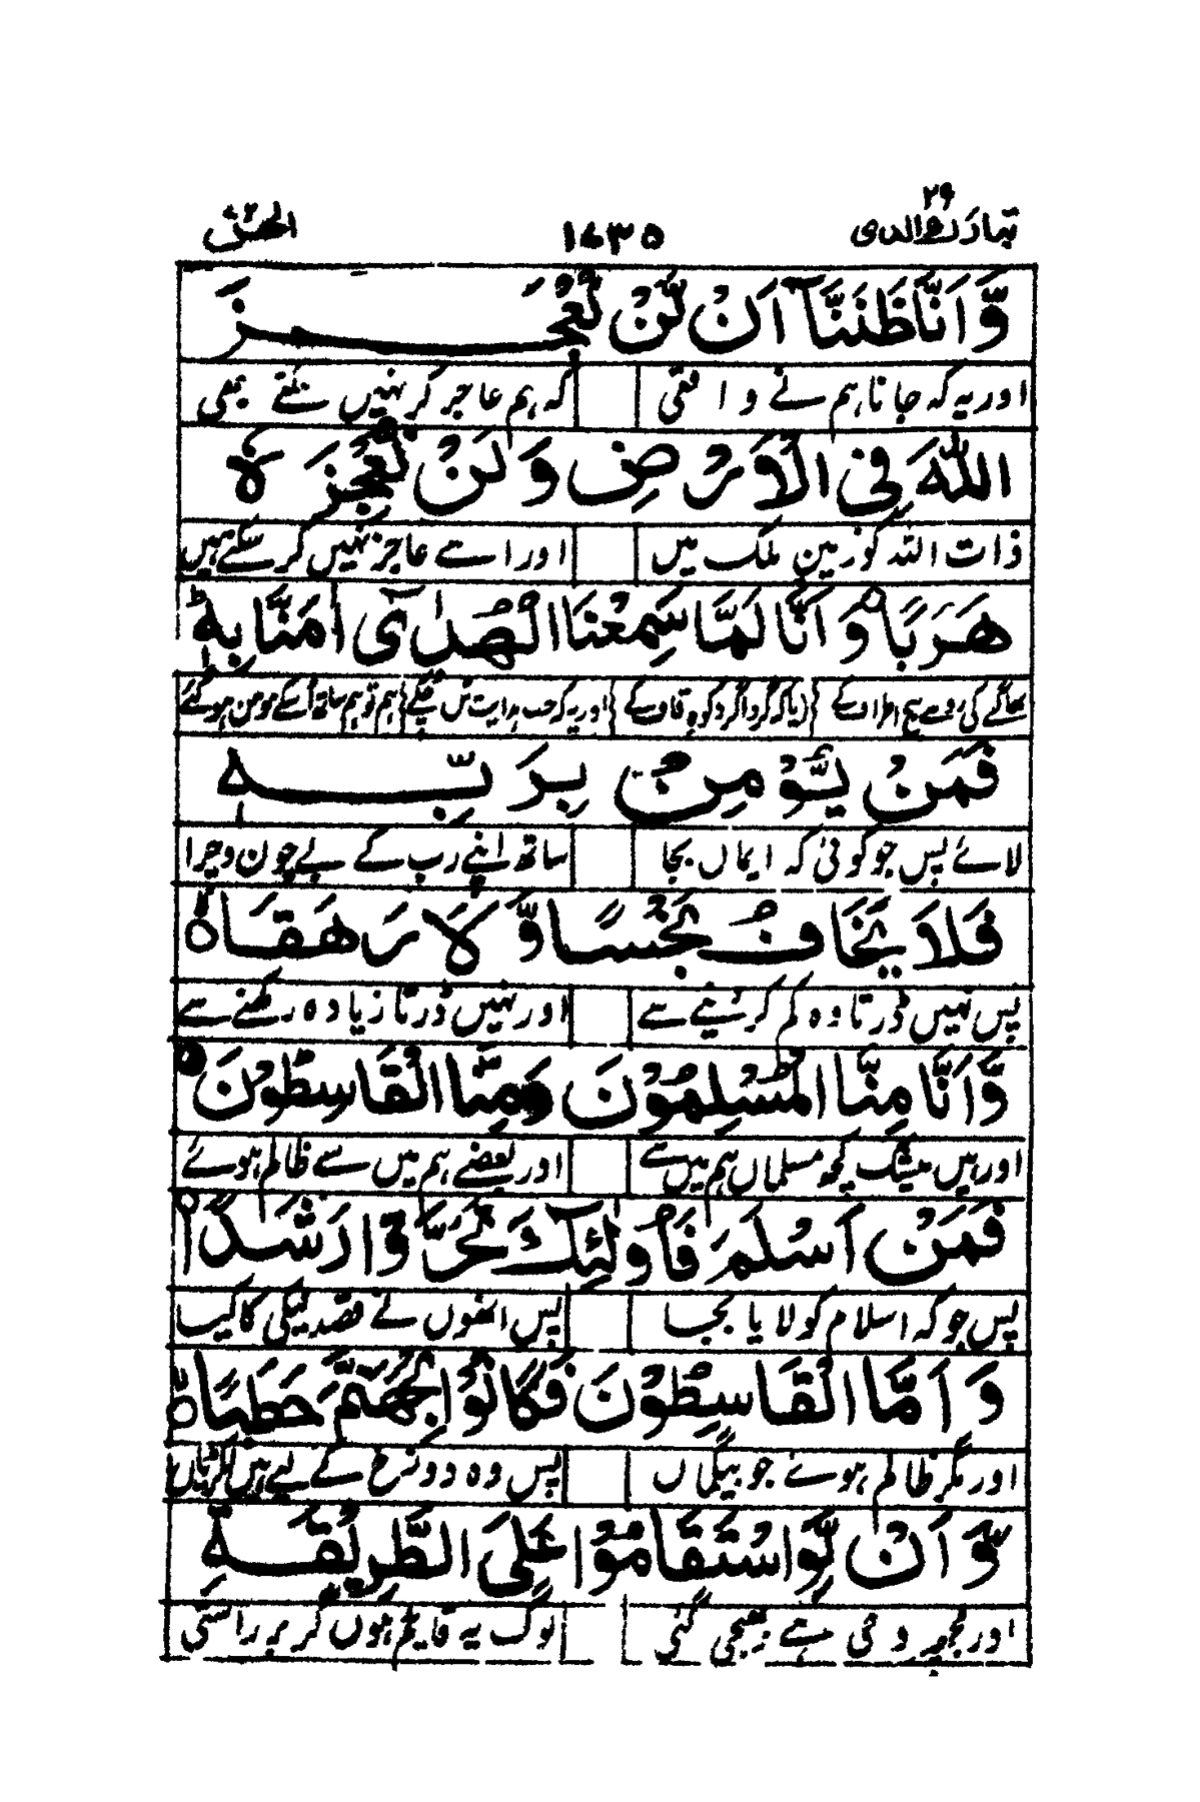 تبارك الذى ٢٩ ١٦٣٥ الجن ٧٢
وَّاَنَّا ظَنَنَّآ اَنْ لَّنْ نُّعْجِزَ
اور یہ کہ جانا ہم نے واقعی کہ ہم عاجز کر نہیں سکتے بھی
اللّٰهَ فِی الْاَرْضِ وَلَنْ نُّعْجِزَهٗ
ذات اللہ کو زمین ملک میں اور اسے عاجز نہیں کر سکے ہیں
هَرَبًا ۙ وَّاَنَّا لَمَّا سَمِعْنَا الْهُدٰۤی اٰمَنَّا بِهٖ ؕ
بھاگنے کی رو سے اور یہ کہ جب ہدایت سن چکے ہم تو ہم ساتھ اسکے مومن ہو گئے
فَمَنْ یُّؤْمِنْۢ بِرَبِّهٖ
لائے پس جو کوئی کہ ایماں بجا ساتھ اپنے رب کے بے چون و چرا
فَلَا یَخَافُ بَخْسًا وَّلَا رَهَقًا ۙ
پس نہیں ڈرتا وہ کم کر دینے سے اور نہیں ڈرتا زیادہ رکھنے سے
وَّاَنَّا مِنَّا الْمُسْلِمُوْنَ وَمِنَّا الْقٰسِطُوْنَ
اور ہیں بیشک کچھ مسلماں ہم میں سے اور بعضے ہم میں سے ظالم ہوئے
فَمَنْ اَسْلَمَ فَاُولٰٓئِكَ تَحَرَّوْا رَشَدًا
پس جو کہ اسلام کو لایا بجا پس انھوں نے قصد نیکی کا کیا
وَاَمَّا الْقَاسِطُوْنَ فَكَانُوْا لِجَهَنَّمَ حَطَبًا ۙ
اور مگر ظالم ہوئے جو بیگماں پس وہ دوزخ کے لیے ہیں لکڑیاں
وَّاَنْ لَّوِ اسْتَقَامُوْا عَلَی الطَّرِیْقَةِ
اور مجھ پہ وحی ہے بھیجی گئی لوگ یہ قایم ہوں گر بر راستی